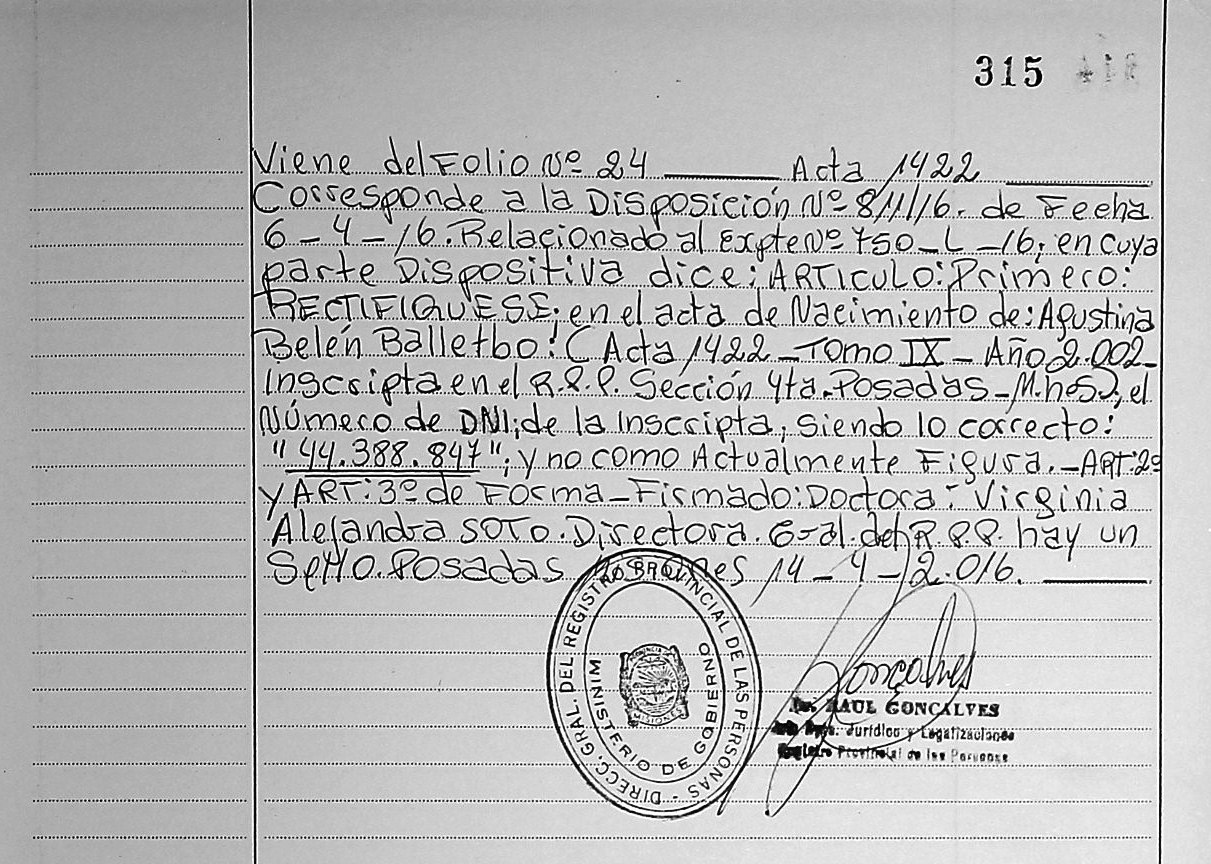 315
Viene del Folio Nº 24 Acta 1422
Corresponde a la Disposición Nº 811/16. de Fecha
6-4-16. Relacionado al Expte Nº 750-L-16; en cuya
parte Dispositiva dice; ARTICULO: Primero:
RECTIFIQUESE; en el acta de Nacimiento de: Agustina
Belén Balletbo: (Acta 1422-Tomo IX-Año 2.002-
Inscripta en el R.P.P. Sección 4ta. Posadas-M.nes.); el
Número de DNI; de la Inscripta; siendo lo correcto:
"44.388.847"; y no como Actualmente Figura.-ART:2º
y ART:3º de Forma-Firmado: Doctora: Virginia
Alejandra SOTO. Directora. Gral. del R.P.P. hay un
Sello. Posadas 14-4-2.016.
DIRECC. GRAL. DEL REGISTRO PROVINCIAL DE LAS PERSONAS -
MINISTERIO DE GOBIERNO
MISIONES
Goncalves
RAUL GONCALVES
Jurídico y Legalizaciones
Registro Provincial de las Personas